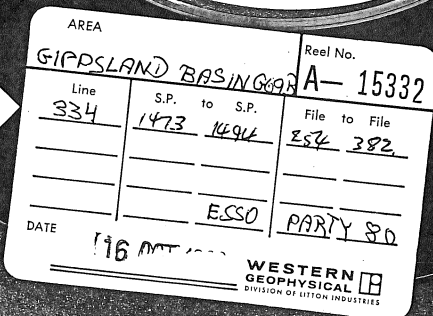 AREA
GIPPSLAND BASIN G69A
Reel No.
A— 15332
Line
S.P. to S.P.
File to File
334
1473 1494
254 382
ESSO
PARTY 80
DATE
16
WESTERN
GEOPHYSICAL
DIVISION OF LITTON INDUSTRIES